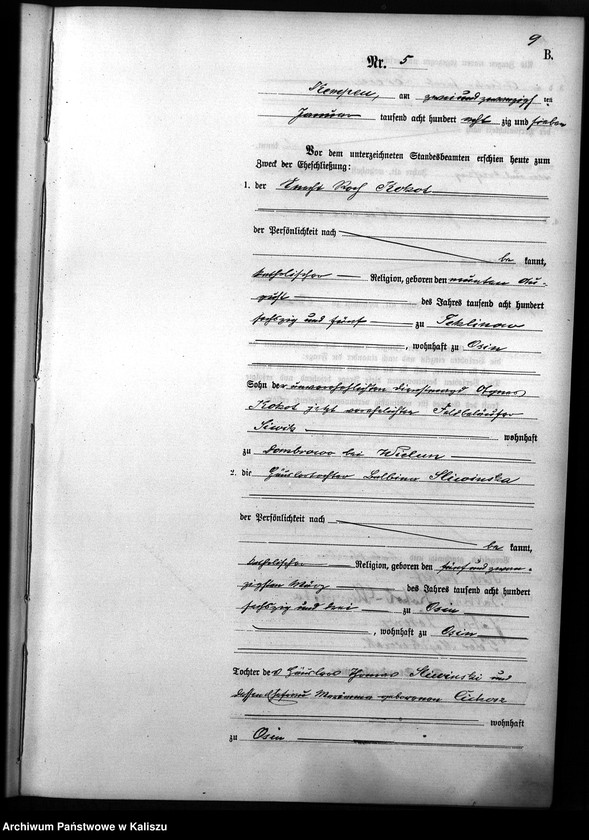 9
B.
Nr. 5
Kempen, am zwei und zwanzigsten
Januar tausend acht hundert acht zig und sieben
Vor dem unterzeichneten Standesbeamten erschien heute zum
Zweck der Eheschließung:
1. der Knecht Kokot
der Persönlichkeit nach
be kannt,
katholischer Religion, geboren den neunten Au-
gust des Jahres tausend acht hundert
sechszig und fünf zu Teklinow
, wohnhaft zu Osin
Sohn der unverehelichten Dienstmagd Agnes
Kokot jetzt verehelichten
wohnhaft
zu Dombrowo bei Wielun
2. die Häuslertochter Balbina Sliwinska
der Persönlichkeit nach
be kannt,
katholischer Religion, geboren den fünf und zwan-
zigsten März des Jahres tausend acht hundert
sechszig und drei zu Osin
, wohnhaft zu Osin
Tochter des Häuslers Thomas Sliwinski und
dessen Ehefrau Marianna geborenen
wohnhaft
zu Osin
Archiwum Państwowe w Kaliszu